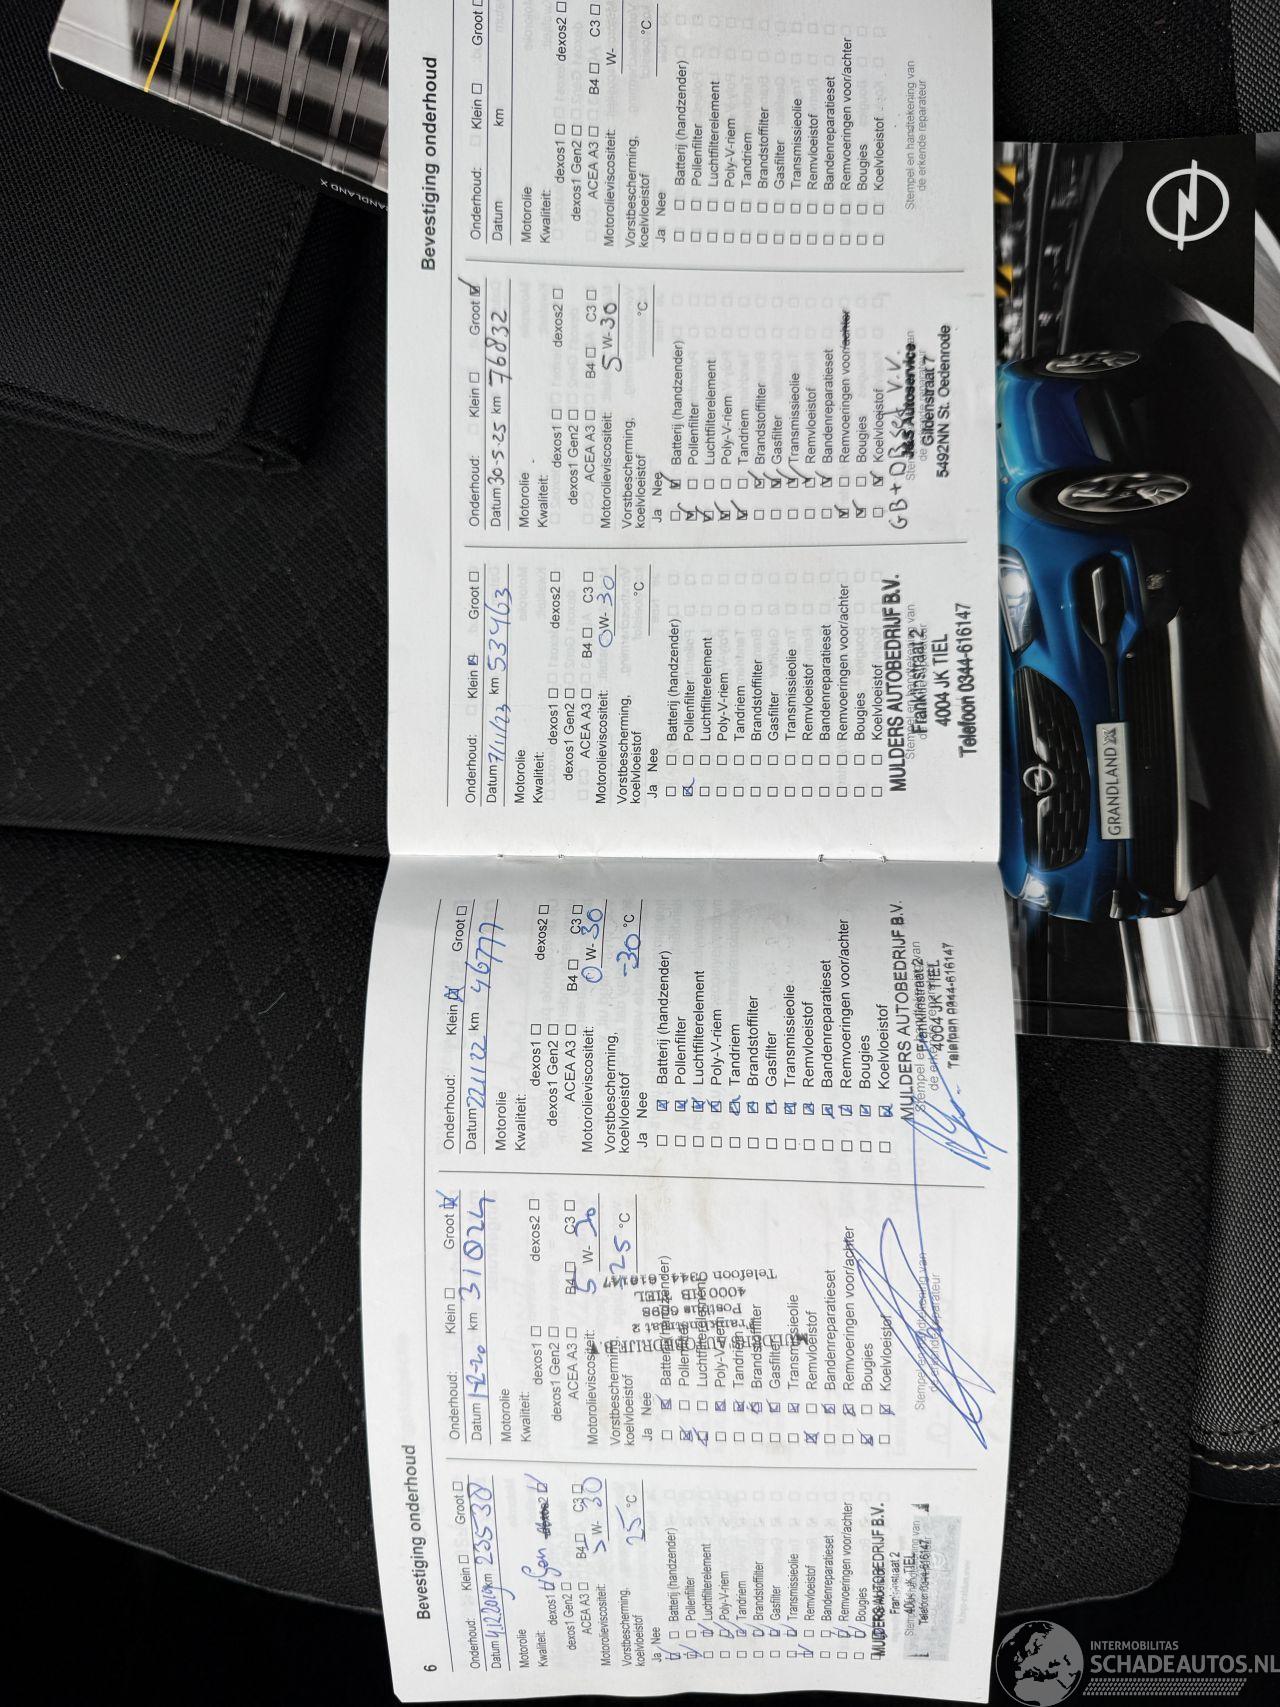 6
Bevestiging onderhoud
Onderhoud: Klein Groot
Datum km 23530
Motorolie
Kwaliteit: dexos1 dexos2
dexos1 Gen2
ACEA A3 B4 C3
Motorolieviscositeit: W- 30
Vorstbescherming,
koelvloeistof 25 °C
Ja Nee
Batterij (handzender)
Pollenfilter
Luchtfilterelement
Poly-V-riem
Tandriem
Brandstoffilter
Gasfilter
Transmissieolie
Remvloeistof
Bandenreparatieset
Remvoeringen voor/achter
Bougies
MULDERS AUTOBEDRIJF B.V.
Franklinstraat 2
4004 JK TIEL
Telefoon 0344-616147
Onderhoud: Klein Groot
Datum 1-2-20 km 31024
Motorolie
Kwaliteit: dexos1 dexos2
dexos1 Gen2
ACEA A3 B4 C3
Motorolieviscositeit: 5 W- 30
Vorstbescherming,
koelvloeistof -25 °C
Ja Nee
Batterij (handzender)
Pollenfilter
Luchtfilterelement
Poly-V-riem
Tandriem
Brandstoffilter
Gasfilter
Transmissieolie
Remvloeistof
Bandenreparatieset
Remvoeringen voor/achter
Bougies
Koelvloeistof
Stempel en handtekening van
de erkende reparateur
Onderhoud: Klein Groot
Datum 22/1/22 km 46777
Motorolie
Kwaliteit: dexos1 dexos2
dexos1 Gen2
ACEA A3 B4 C3
Motorolieviscositeit: 0 W- 30
Vorstbescherming,
koelvloeistof -30 °C
Ja Nee
Batterij (handzender)
Pollenfilter
Luchtfilterelement
Poly-V-riem
Tandriem
Brandstoffilter
Gasfilter
Transmissieolie
Remvloeistof
Bandenreparatieset
Remvoeringen voor/achter
Bougies
Koelvloeistof
MULDERS AUTOBEDRIJF B.V.
Stempel en handtekening van
Franklinstraat 2
de erkende reparateur
4004 JK TIEL
Telefoon 0344-616147
Onderhoud: Klein Groot
Datum 7/11/23 km 53463
Motorolie
Kwaliteit: dexos1 dexos2
dexos1 Gen2
ACEA A3 B4 C3
Motorolieviscositeit: 0W- 30
Vorstbescherming,
koelvloeistof °C
Ja Nee
Batterij (handzender)
Pollenfilter
Luchtfilterelement
Poly-V-riem
Tandriem
Brandstoffilter
Gasfilter
Transmissieolie
Remvloeistof
Bandenreparatieset
Remvoeringen voor/achter
Bougies
Koelvloeistof
MULDERS AUTOBEDRIJF B.V.
Stempel en handtekening van
Franklinstraat 2
4004 JK TIEL
Telefoon 0344-616147
Onderhoud: Klein Groot
Datum 30-5-25 km 76832
Motorolie
Kwaliteit: dexos1 dexos2
dexos1 Gen2
ACEA A3 B4 C3
Motorolieviscositeit: 5 W-30
Vorstbescherming,
koelvloeistof °C
Ja Nee
Batterij (handzender)
Pollenfilter
Luchtfilterelement
Poly-V-riem
Tandriem
Brandstoffilter
Gasfilter
Transmissieolie
Remvloeistof
Bandenreparatieset
Remvoeringen voor/achter
Bougies
Koelvloeistof
GB + DB set V.V.
J&S Autoservice
Gildenstraat 7
5492NN St. Oedenrode
Bevestiging onderhoud
Onderhoud: Klein Groot
Datum km
Motorolie
Kwaliteit: dexos1 dexos2
dexos1 Gen2
ACEA A3 B4 C3
Motorolieviscositeit: W-
Vorstbescherming,
koelvloeistof °C
Ja Nee
Batterij (handzender)
Pollenfilter
Luchtfilterelement
Poly-V-riem
Tandriem
Brandstoffilter
Gasfilter
Transmissieolie
Remvloeistof
Bandenreparatieset
Remvoeringen voor/achter
Bougies
Koelvloeistof
Stempel en handtekening van
de erkende reparateur
GRANDLAND X
INTERMOBILITAS
SCHADEAUTOS.NL